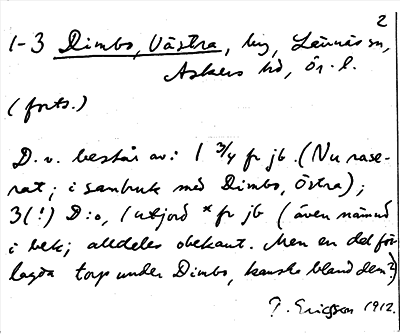 2
1-3 Dimbo, Västra, hg, Lännäs sn,
Askers hd, Ör. l.
(forts.)
D. v. består av: 1 3/4 fr jb. (Nu rase-
rat; i sambruk med Dimbo, Östra);
3(!) D:o, 1 utjord * fr jb (även nämnd
i bek; alldeles obekant. Men en del för
lagda torp under Dimbo, kanske bland den?)
J. Ericsson 1912.